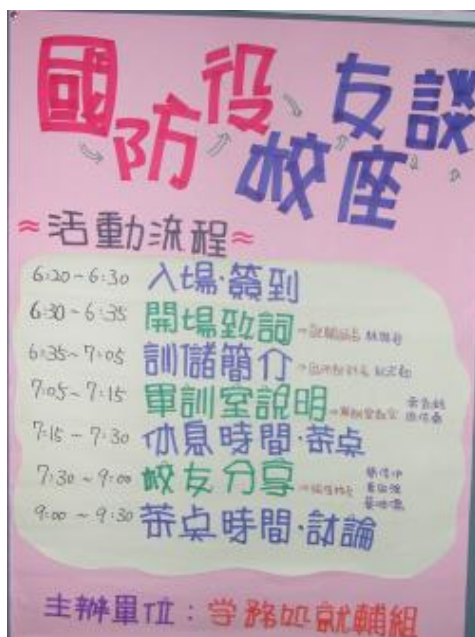 國防役校友座談
≈活動流程≈
6:20~6:30 入場·簽到
6:30~6:35 開場致詞
6:35~7:05 訓儲簡介
7:05~7:15 軍訓室說明
7:15-7:30 休息時間·茶点
7:30~9:00 校友分享
9:00~9:30 茶点時間·討論
主辦單位：学務処就輔組